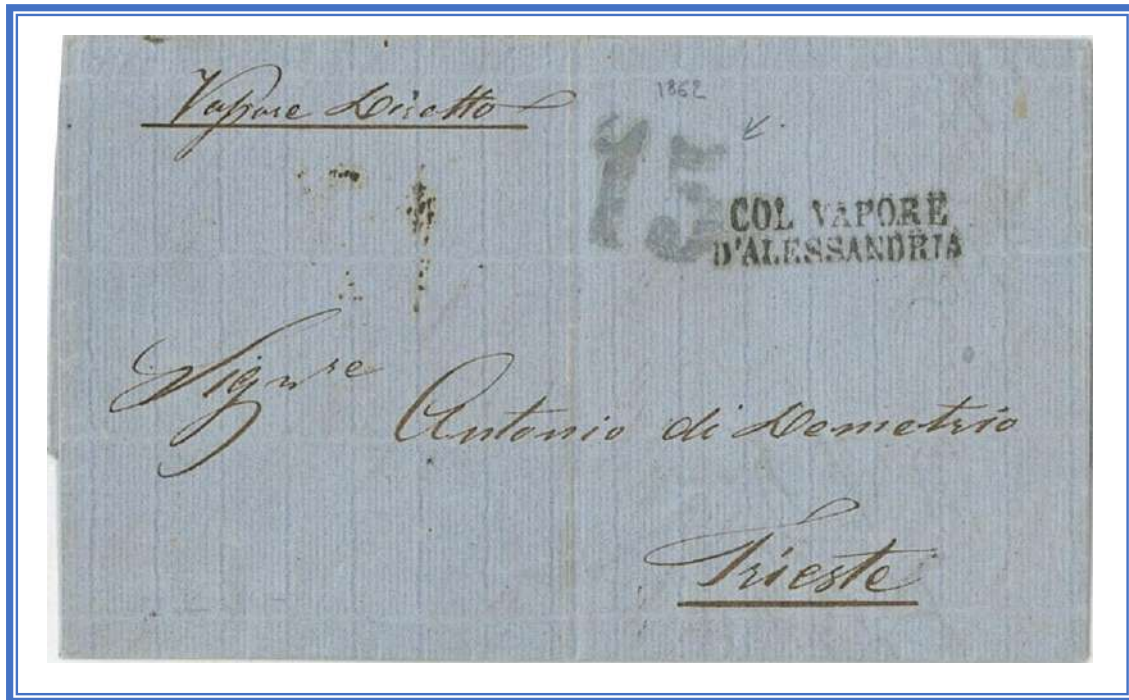 Vapore Diretto
1862
15
COL VAPORE
D'ALESSANDRIA
Sign.re
Antonio di Demetrio
Trieste